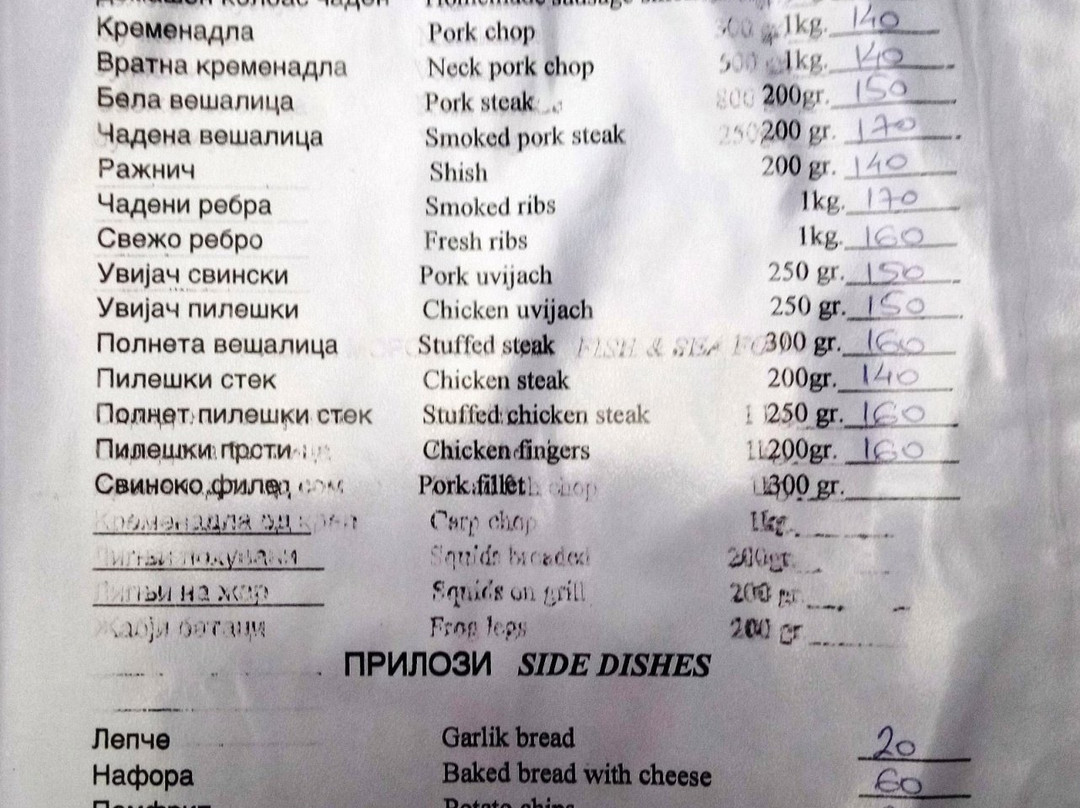 Домашен колбас чаден Homemade sausage
Кременадла Pork chop 1kg. 140
Вратна кременадла Neck pork chop 1kg. 140
Бела вешалица Pork steak 200gr. 150
Чадена вешалица Smoked pork steak 200 gr. 170
Ражнич Shish 200 gr. 140
Чадени ребра Smoked ribs 1kg. 170
Свежо ребро Fresh ribs 1kg. 160
Увијач свински Pork uvijach 250 gr. 150
Увијач пилешки Chicken uvijach 250 gr. 150
Полнета вешалица Stuffed steak FISH & SEA 300 gr. 160
Пилешки стек Chicken steak 200gr. 140
Полнет пилешки стек Stuffed chicken steak 250 gr. 160
Пилешки прсти Chicken fingers 200gr. 160
Свинско филе Pork fillet 300 gr.
Кременадла од крап Carp chop 1kg.
Squids breaded 200gr.
на жар Squids on grill 200 gr.
Frog legs 200 gr
ПРИЛОЗИ SIDE DISHES
Лепче Garlik bread 20
Нафора Baked bread with cheese 60
Помфрит Potato chips